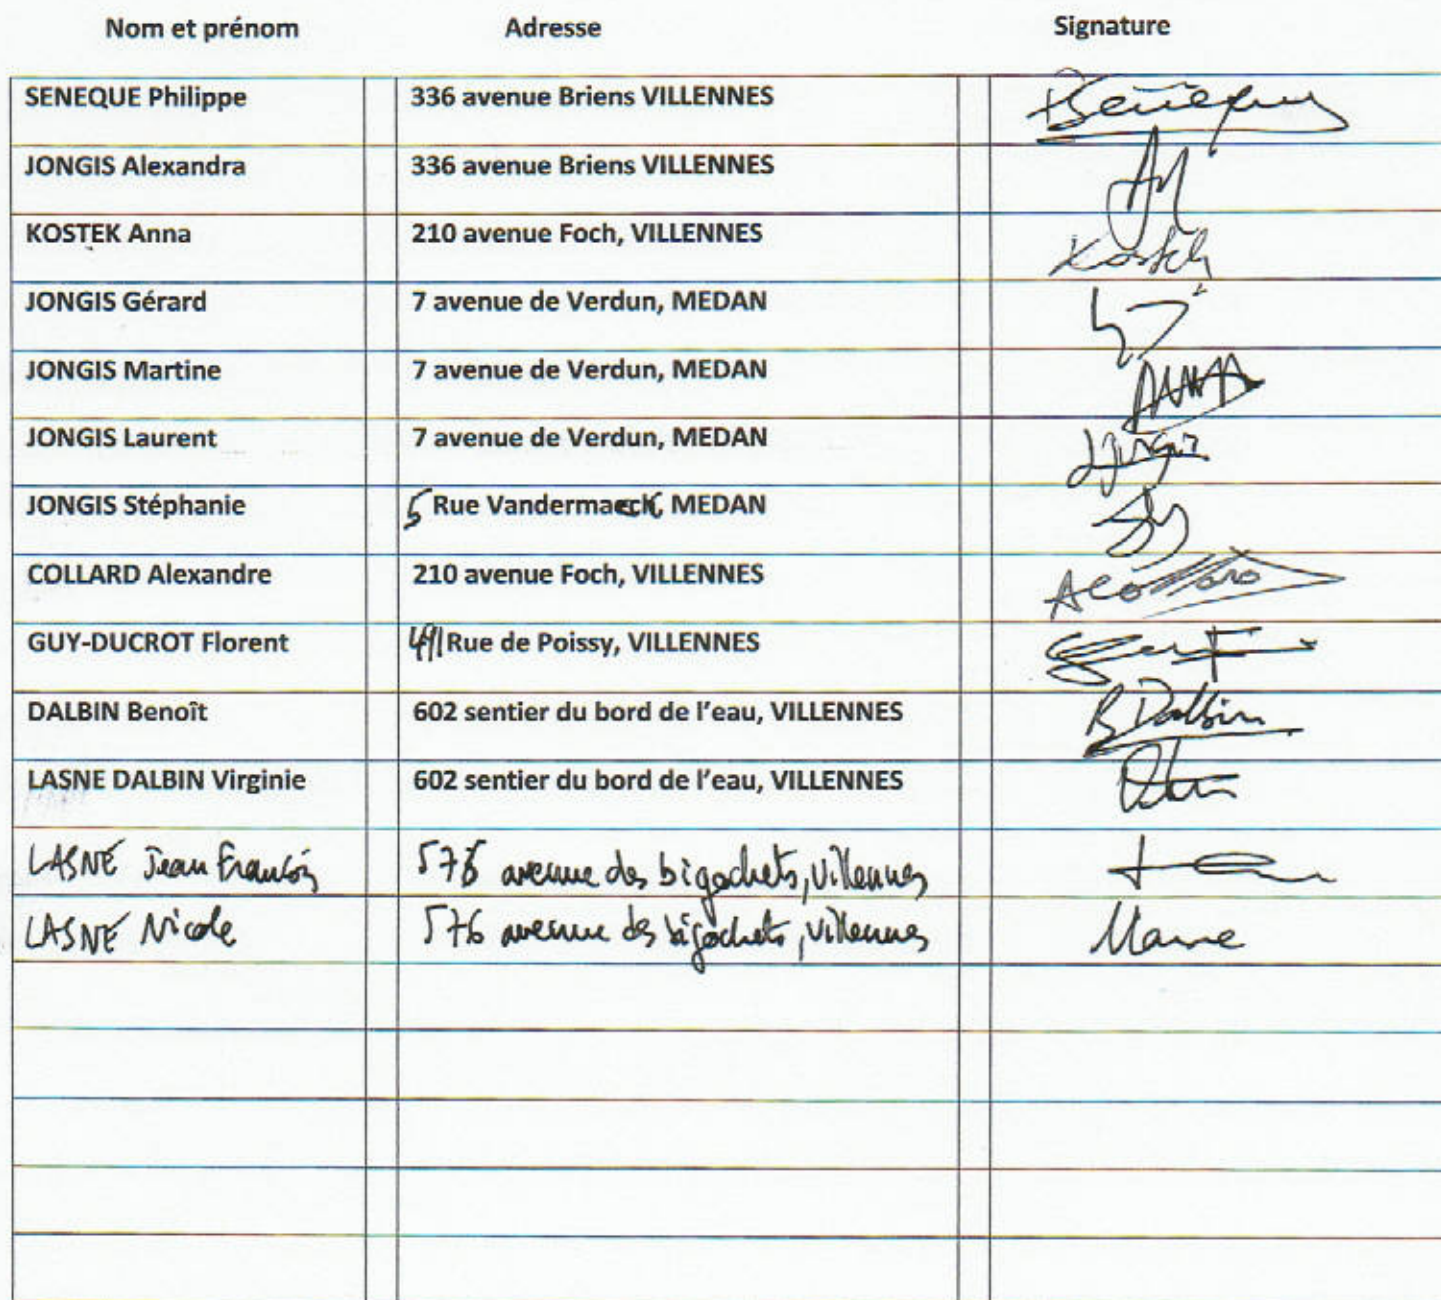 Nom et prénom Adresse Signature
SENEQUE Philippe 336 avenue Briens VILLENNES Seneque
JONGIS Alexandra 336 avenue Briens VILLENNES
KOSTEK Anna 210 avenue Foch, VILLENNES Kostek
JONGIS Gérard 7 avenue de Verdun, MEDAN
JONGIS Martine 7 avenue de Verdun, MEDAN
JONGIS Laurent 7 avenue de Verdun, MEDAN
JONGIS Stéphanie 5 Rue Vandermaeck, MEDAN
COLLARD Alexandre 210 avenue Foch, VILLENNES
GUY-DUCROT Florent 491 Rue de Poissy, VILLENNES
DALBIN Benoît 602 sentier du bord de l'eau, VILLENNES B Dalbin
LASNE DALBIN Virginie 602 sentier du bord de l'eau, VILLENNES
LASNE Jean François 576 avenue des bigochets, Villennes
LASNE Nicole 576 avenue des bigochets, Villennes